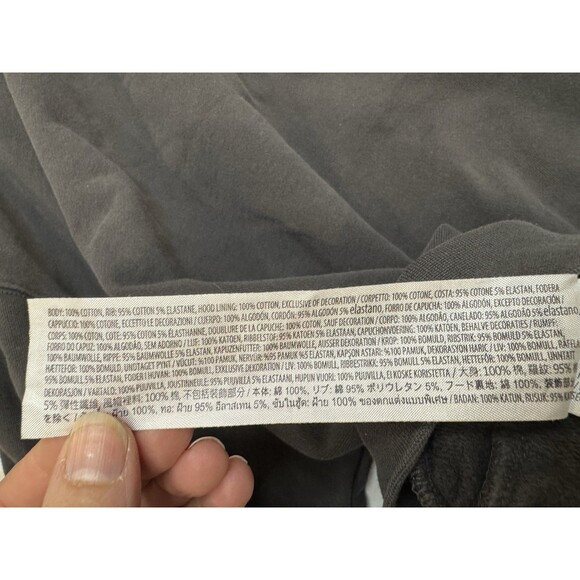 BODY: 100% COTTON, RIB: 95% COTTON 5% ELASTANE, HOOD LINING: 100% COTTON, EXCLUSIVE OF DECORATION / CORPETTO: 100% COTONE, COSTA: 95% COTONE 5% ELASTAN, FODERA
CAPPUCCIO: 100% COTONE, ECCETTO LE DECORAZIONI / CUERPO: 100% ALGODÓN, CORDÓN: 95% ALGODÓN 5% elastano, FORRO DE CAPUCHA: 100% ALGODÓN, EXCEPTO DECORACIÓN /
CORPS: 100% COTON, COTE: 95% COTON 5% ÉLASTHANNE, DOUBLURE DE LA CAPUCHE: 100% COTON, SAUF DECORATION / CORPO: 100% ALGODÃO, CANELADO: 95% ALGODÃO 5% elastano,
FORRO DO CAPUZ: 100% ALGODÃO, SEM ADORNO / LIJF: 100% KATOEN, RIBBELSTOF: 95% KATOEN 5% ELASTAAN, CAPUCHONVOERING: 100% KATOEN, BEHALVE DECORATIES / RUMPF:
100% BAUMWOLLE, RIPPE: 95% BAUMWOLLE 5% ELASTAN, KAPUZENFUTTER: 100% BAUMWOLLE, AUSSER DEKORATION / KROP: 100% BOMULD, RIBSTRIK: 95% BOMULD 5%
HÆTTEFOR: 100% BOMULD, UNDTAGET PYNT / VÜCUT: %100 PAMUK, NERVÜR: %95 PAMUK %5 ELASTAN, KAPŞON ASTARI: %100 PAMUK, DEKORASYON HARİÇ / LIV: 100% BOMULL,
100% BOMULL, EXKLUSIVE DEKORERING / LIV: 100% BOMULL, RIBBSTRIKK: 95% BOMULL 5% ELASTAN, HETTEFÔR: 100% BOMULL, UNNTATT
DEKORASJON / VARTALO: 100% PUUVILLA, JOUSTINNEULE: 95% PUUVILLA 5% ELASTAANI, HUPUN VUORI: 100% PUUVILLA, EI KOSKE KORISTETTA / 大身: 100% 棉, 羅紋: 95% 棉
5% 彈性纖維, 風帽裡料: 100% 棉, 不包括裝飾部分 / 本体: 綿 100%, リブ: 綿 95% ポリウレタン 5%, フード裏地: 綿 100%, 装飾部
を除く / ผ้าย 100%, ทอ: ฝ้าย 95% อีลาสเทน 5%, ซับในฮู้ด: ฝ้าย 100% ของตกแต่งแบบพิเศษ / BADAN: 100% KATUN, RUSUK: 95% KA